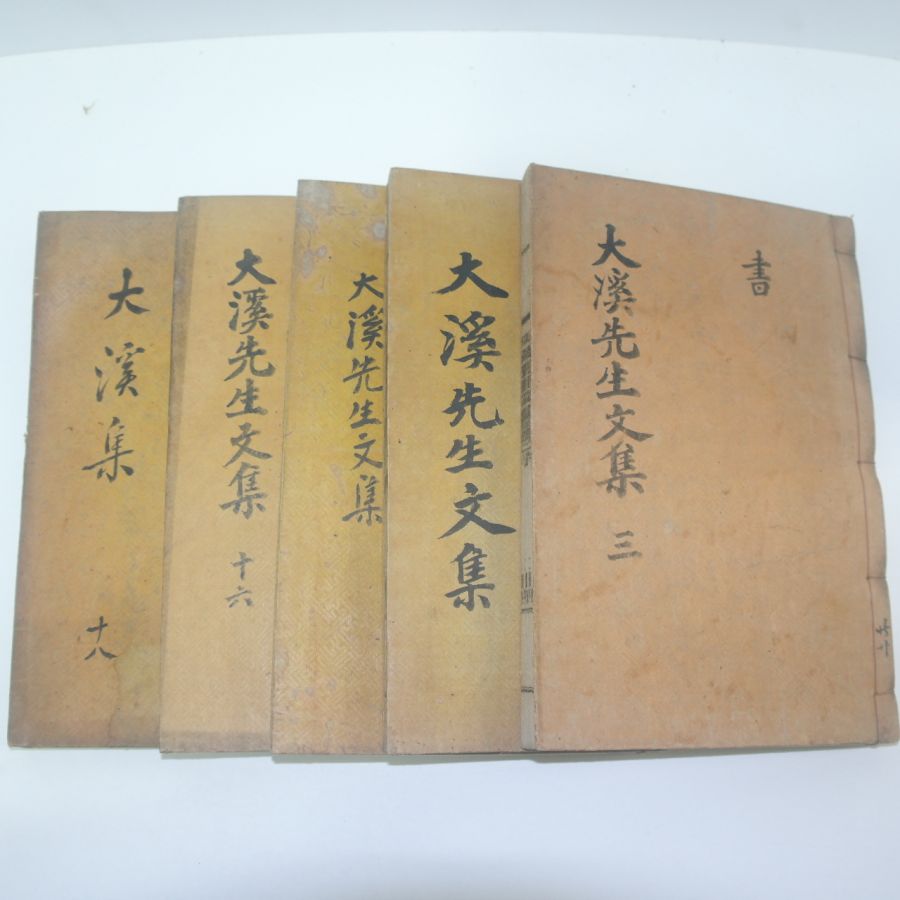 書
大溪先生文集 三
大溪先生文集
大溪先生文集
大溪先生文集 十六
大溪集 十八